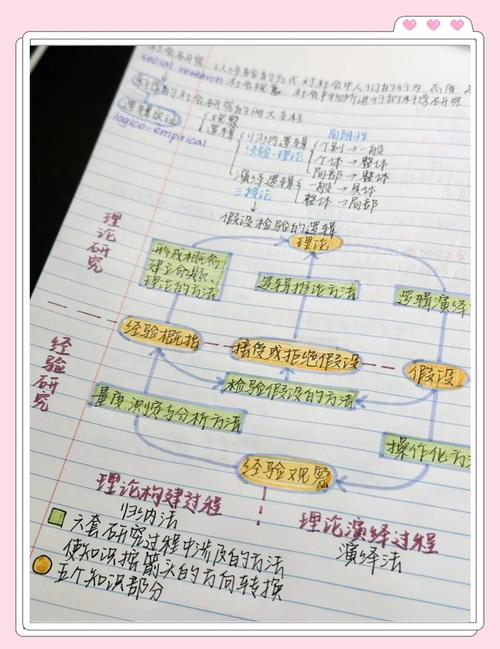 社会研究 以经验的方式 对社会中人们的行为、态度、
social research 社会现象、社会
社会研究的两大支柱
逻辑
观察
logico-empirical
逻辑
局限性
归纳逻辑
个别→一般
经验→理论
个体→整体
局部→整体
演绎逻辑
一般→具体
三段论
整体→局部
假设检验的逻辑
理论
理论研究
形成概念
建立命题、
理论的方法
逻辑推论方法
逻辑演绎
经验概括
接受或拒绝假设
假设
经验研究
检验假设的方法
量度、测定与分析方法
操作化方法
经验观察
理论构建过程
归纳法
理论演绎过程
演绎法
六套研究过程中涉及的方法
使知识按箭头的方向转换
五个知识部分